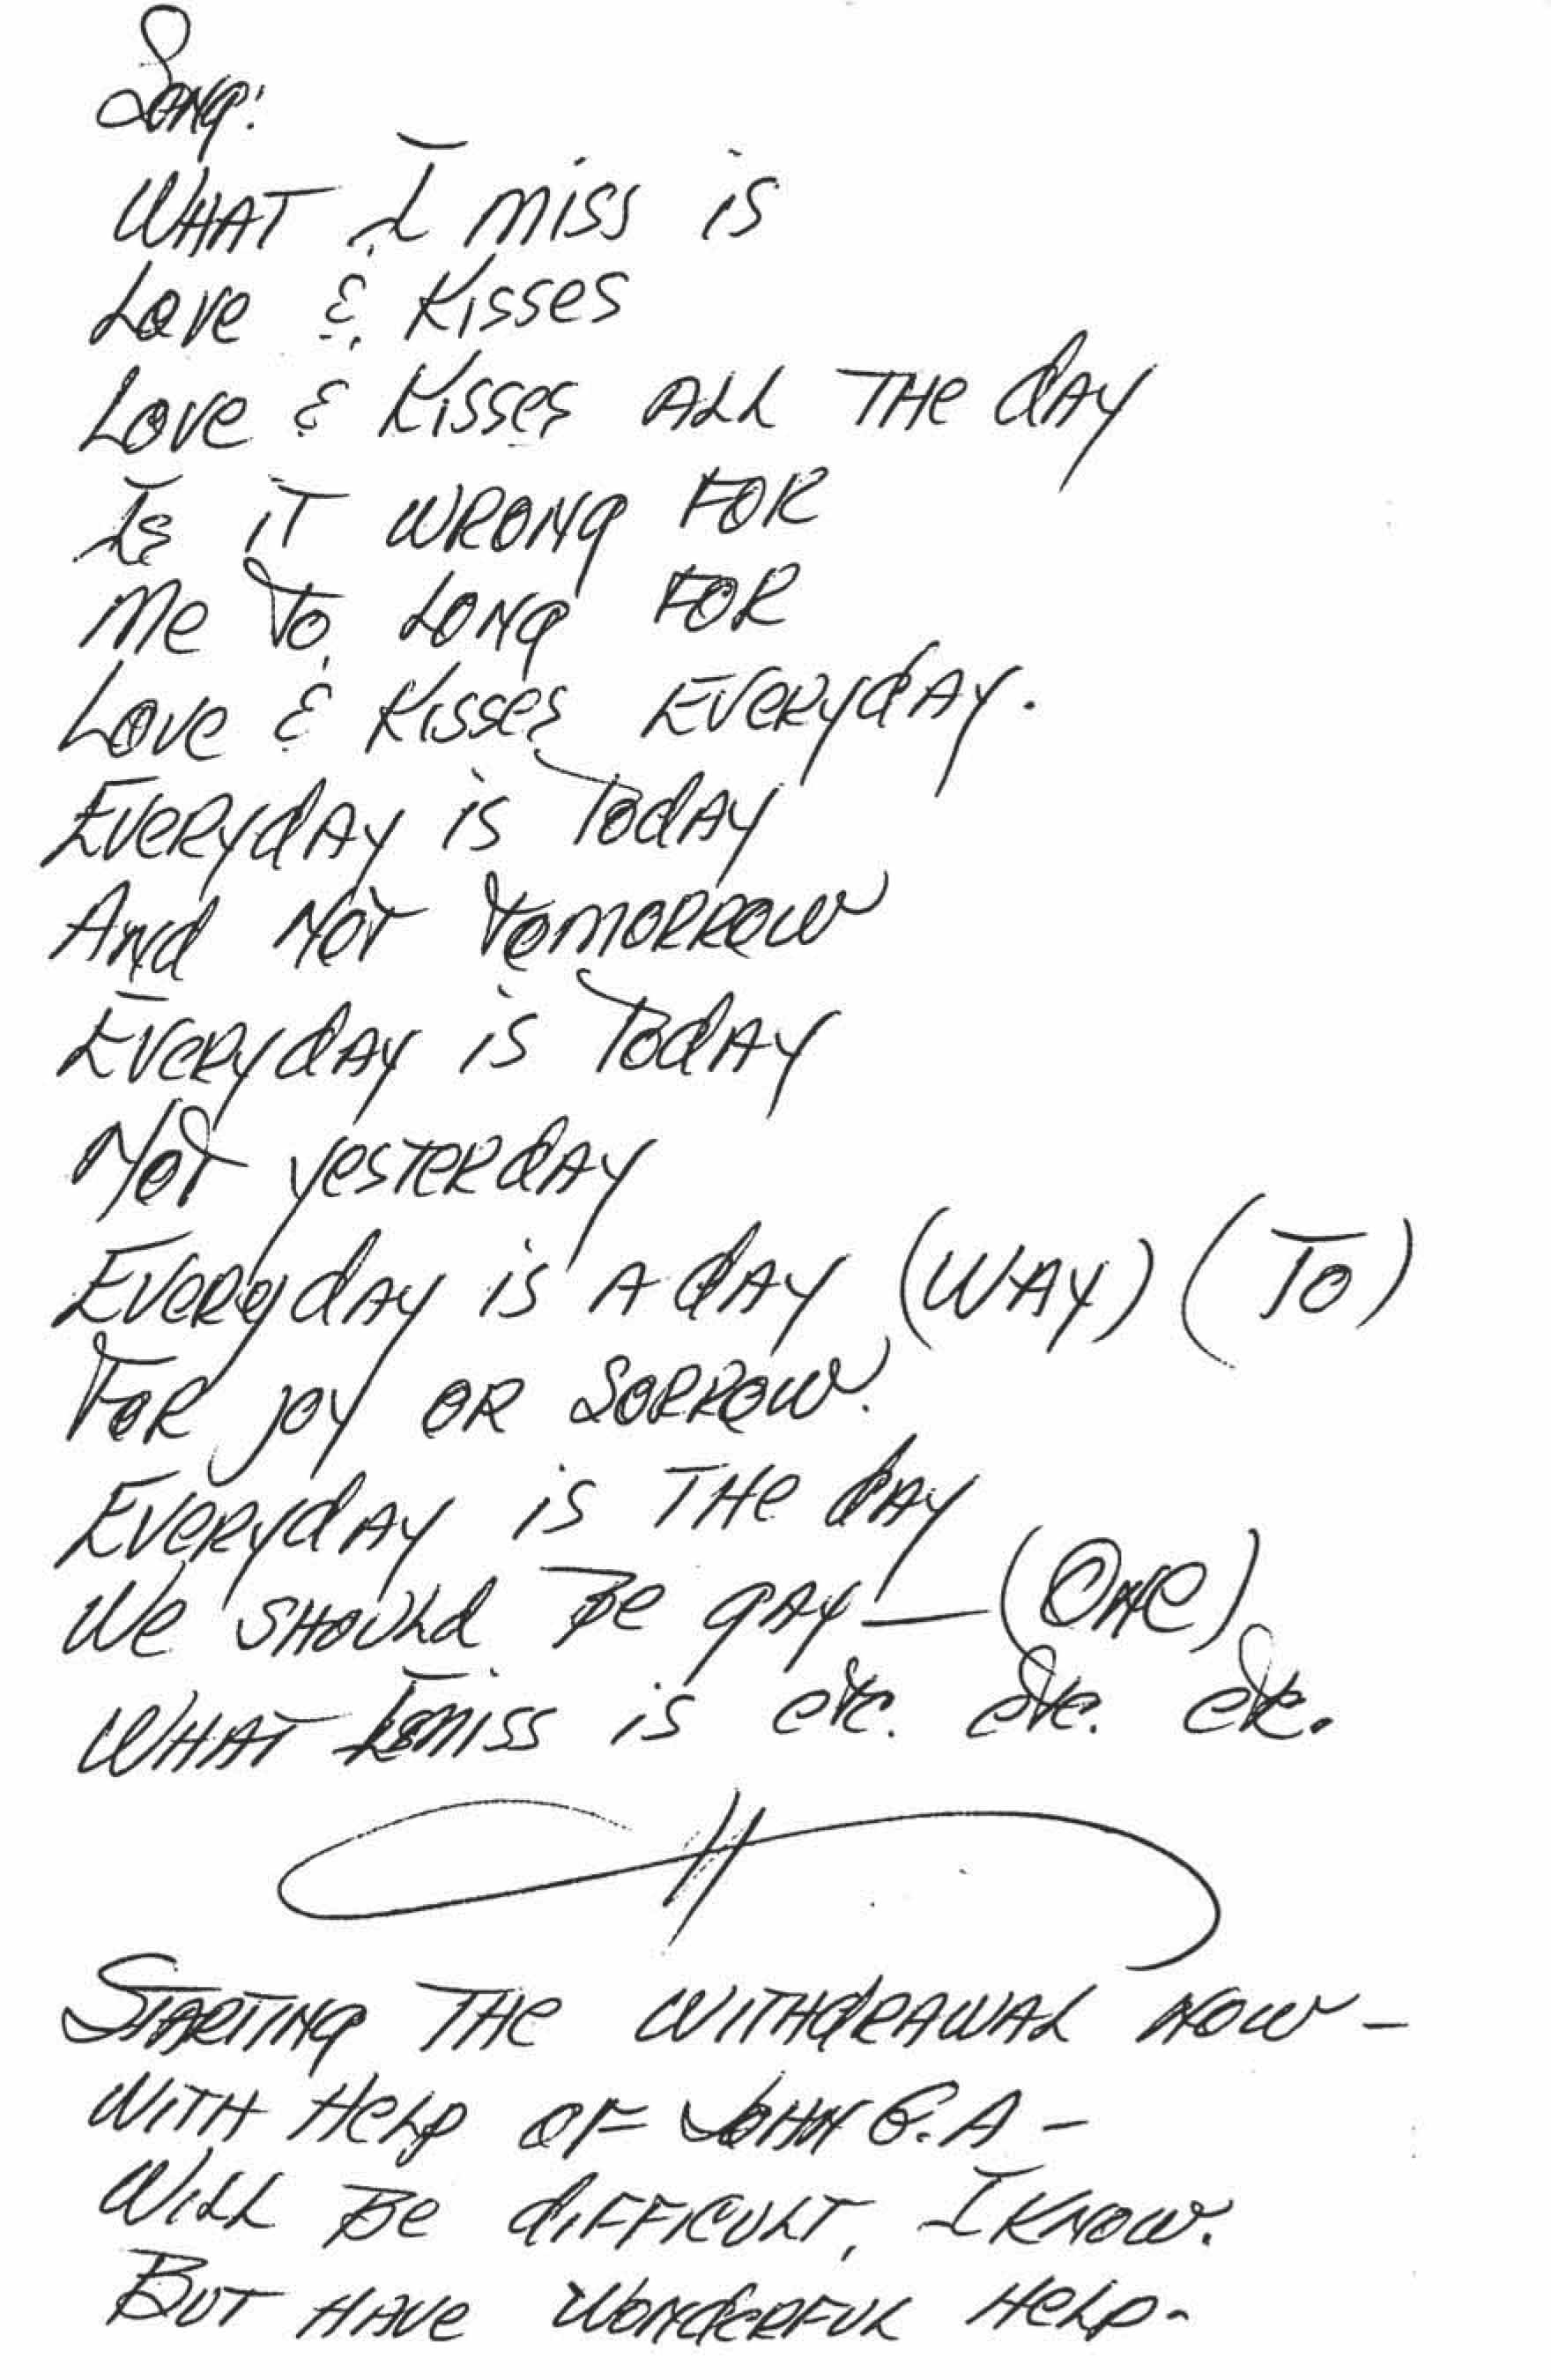 Song:
WHAT I miss is
Love & Kisses
Love & Kisses ALL THe dAY
Is iT WRONg FOR
Me To LONg FOR
Love & Kisses EveRydAY.
EveRydAY is TodAY
And NOT TomORROW
EveRydAY is TodAY
NoT yesTeRdAY
EveRydAY is A dAY (WAY) (To)
FoR joy OR SORROW.
EveRydAY is THe dAY
We SHOULd Be gAY — (ONe)
WHAT I miss is etc. etc. etc.
STARTINg THe WITHdRAWAL NOW -
WITH HeLp OF JOHN G.A -
WiLL Be diFFICULT, I KNOW.
BUT HAVe WONdeRFUL HeLp-